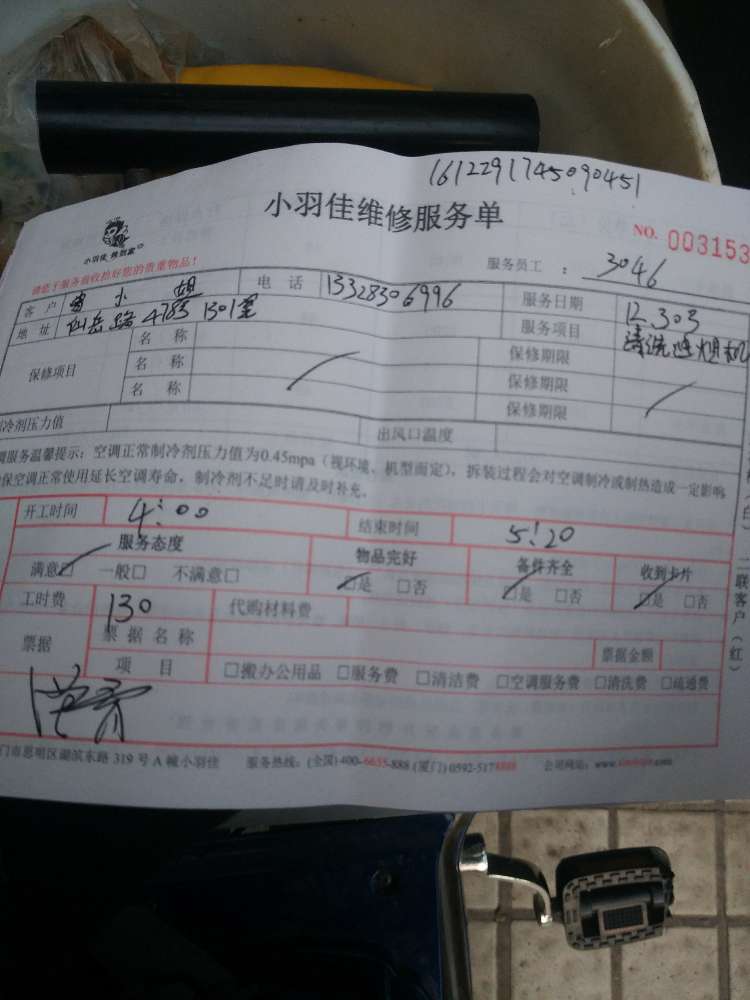 1612291745090451
小羽佳维修服务单
NO. 003153
小羽佳 修到家
请您于服务前收拾好您的贵重物品!
服务员工 : 3046
客户 小姐 电话 13328306996 服务日期 12.30
地址 仙岳路 1301室 服务项目 清洗
保修项目 名称 保修期限
名称 保修期限
名称 保修期限
冷剂压力值 出风口温度
调服务温馨提示:空调正常制冷剂压力值为0.45mpa(视环境、机型而定),拆装过程会对空调制冷或制热造成一定影响
保空调正常使用延长空调寿命,制冷剂不足时请及时补充。
开工时间 4:00 结束时间 5:20
服务态度 物品完好 备件齐全 收到卡片
满意□ 一般□ 不满意□ □是 □否 □是 □否 □是 □否
工时费 130 代购材料费
票据 票据名称 票据金额
项目 □搬办公用品 □服务费 □清洁费 □空调服务费 □清洗费 □疏通费
二联客户(红)
门市思明区湖滨东路 319 号 A 幢小羽佳 服务热线:(全国)400-6655-888 (厦门)0592-5178888 公司网站: